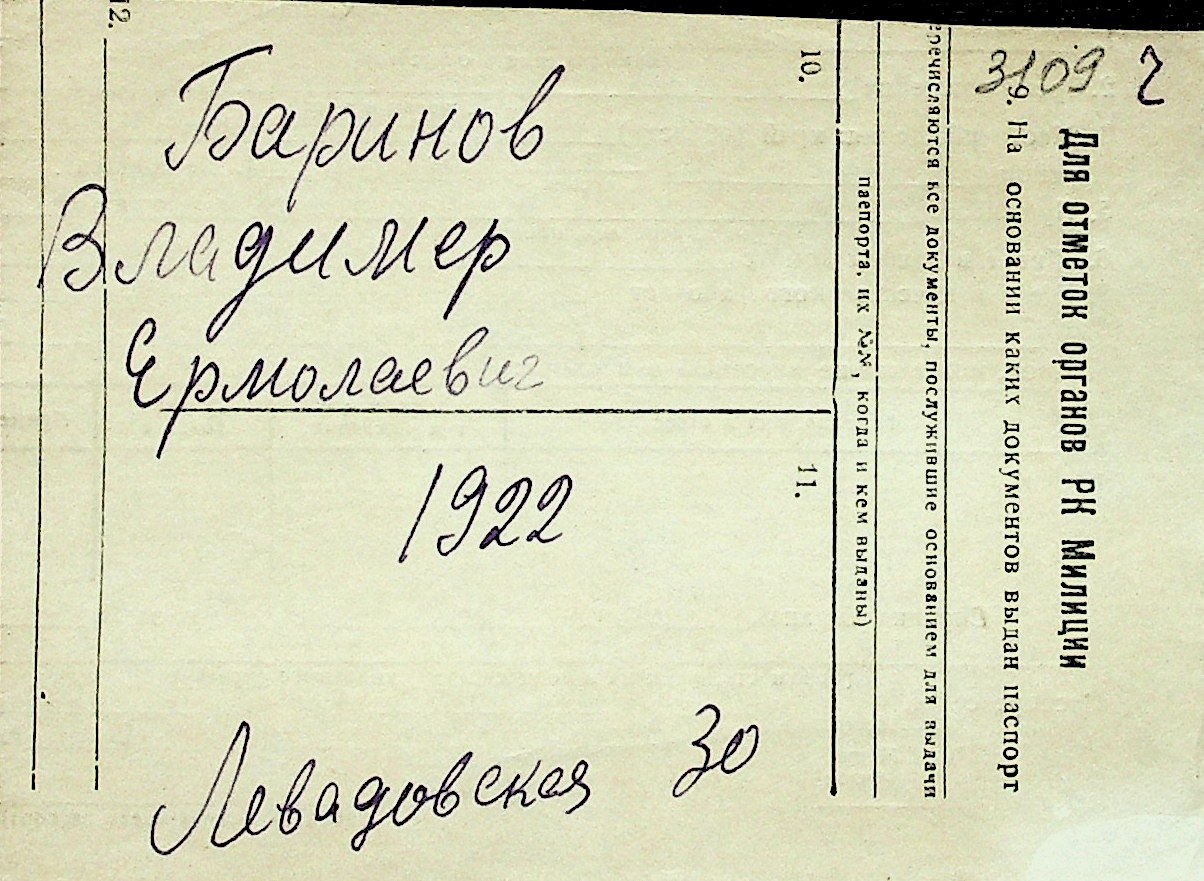 3109 2
Баринов
Владимер
Ермолаевич
1922
Левадовская 30
Для отметок органов РК Милиции
9. На основании каких документов выдан паспорт
еречисляются все документы, послужившие основанием для выдачи
паспорта, их №№, когда и кем выданы)
10.
11.
12.